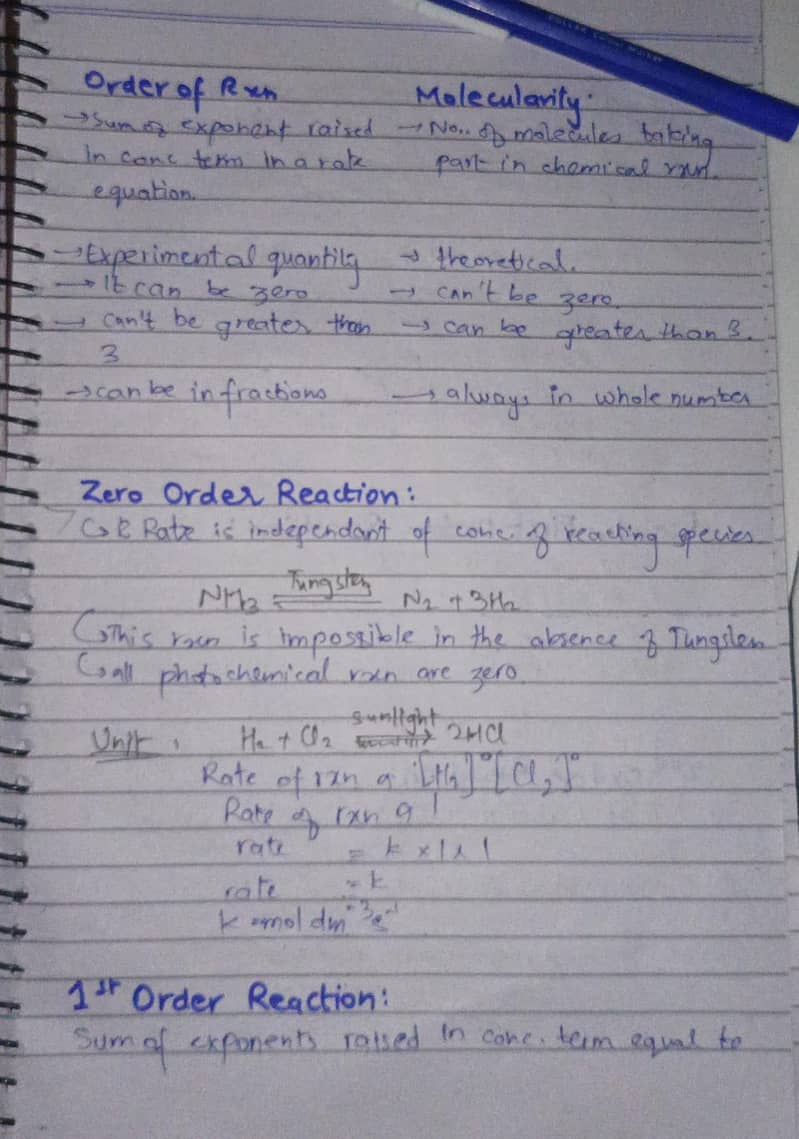 Order of Rxn
Molecularity.
→ Sum of exponent raised
in conc term in a rate
equation.
→ No.. of molecules taking
part in chemical rxn.
→ Experimental quantity
→ theoretical.
→ It can be zero
→ can't be zero.
→ can't be greater than
3
→ can be greater than 3.
→ can be in fractions
→ always in whole number
Zero Order Reaction:
Rate is independant of conc. of reacting species
NH3 ⇌ N2 + 3H2
Tungsten
This rxn is impossible in the absence of Tungsten
all photochemical rxn are zero
Unit,
sunlight
H2 + Cl2 → 2HCl
Rate of rxn α [H2]° [Cl2]°
Rate of rxn α 1
rate = k x 1 x 1
rate = k
k = mol dm⁻³ s⁻¹
1st Order Reaction:
Sum of exponents raised in conc. term equal to